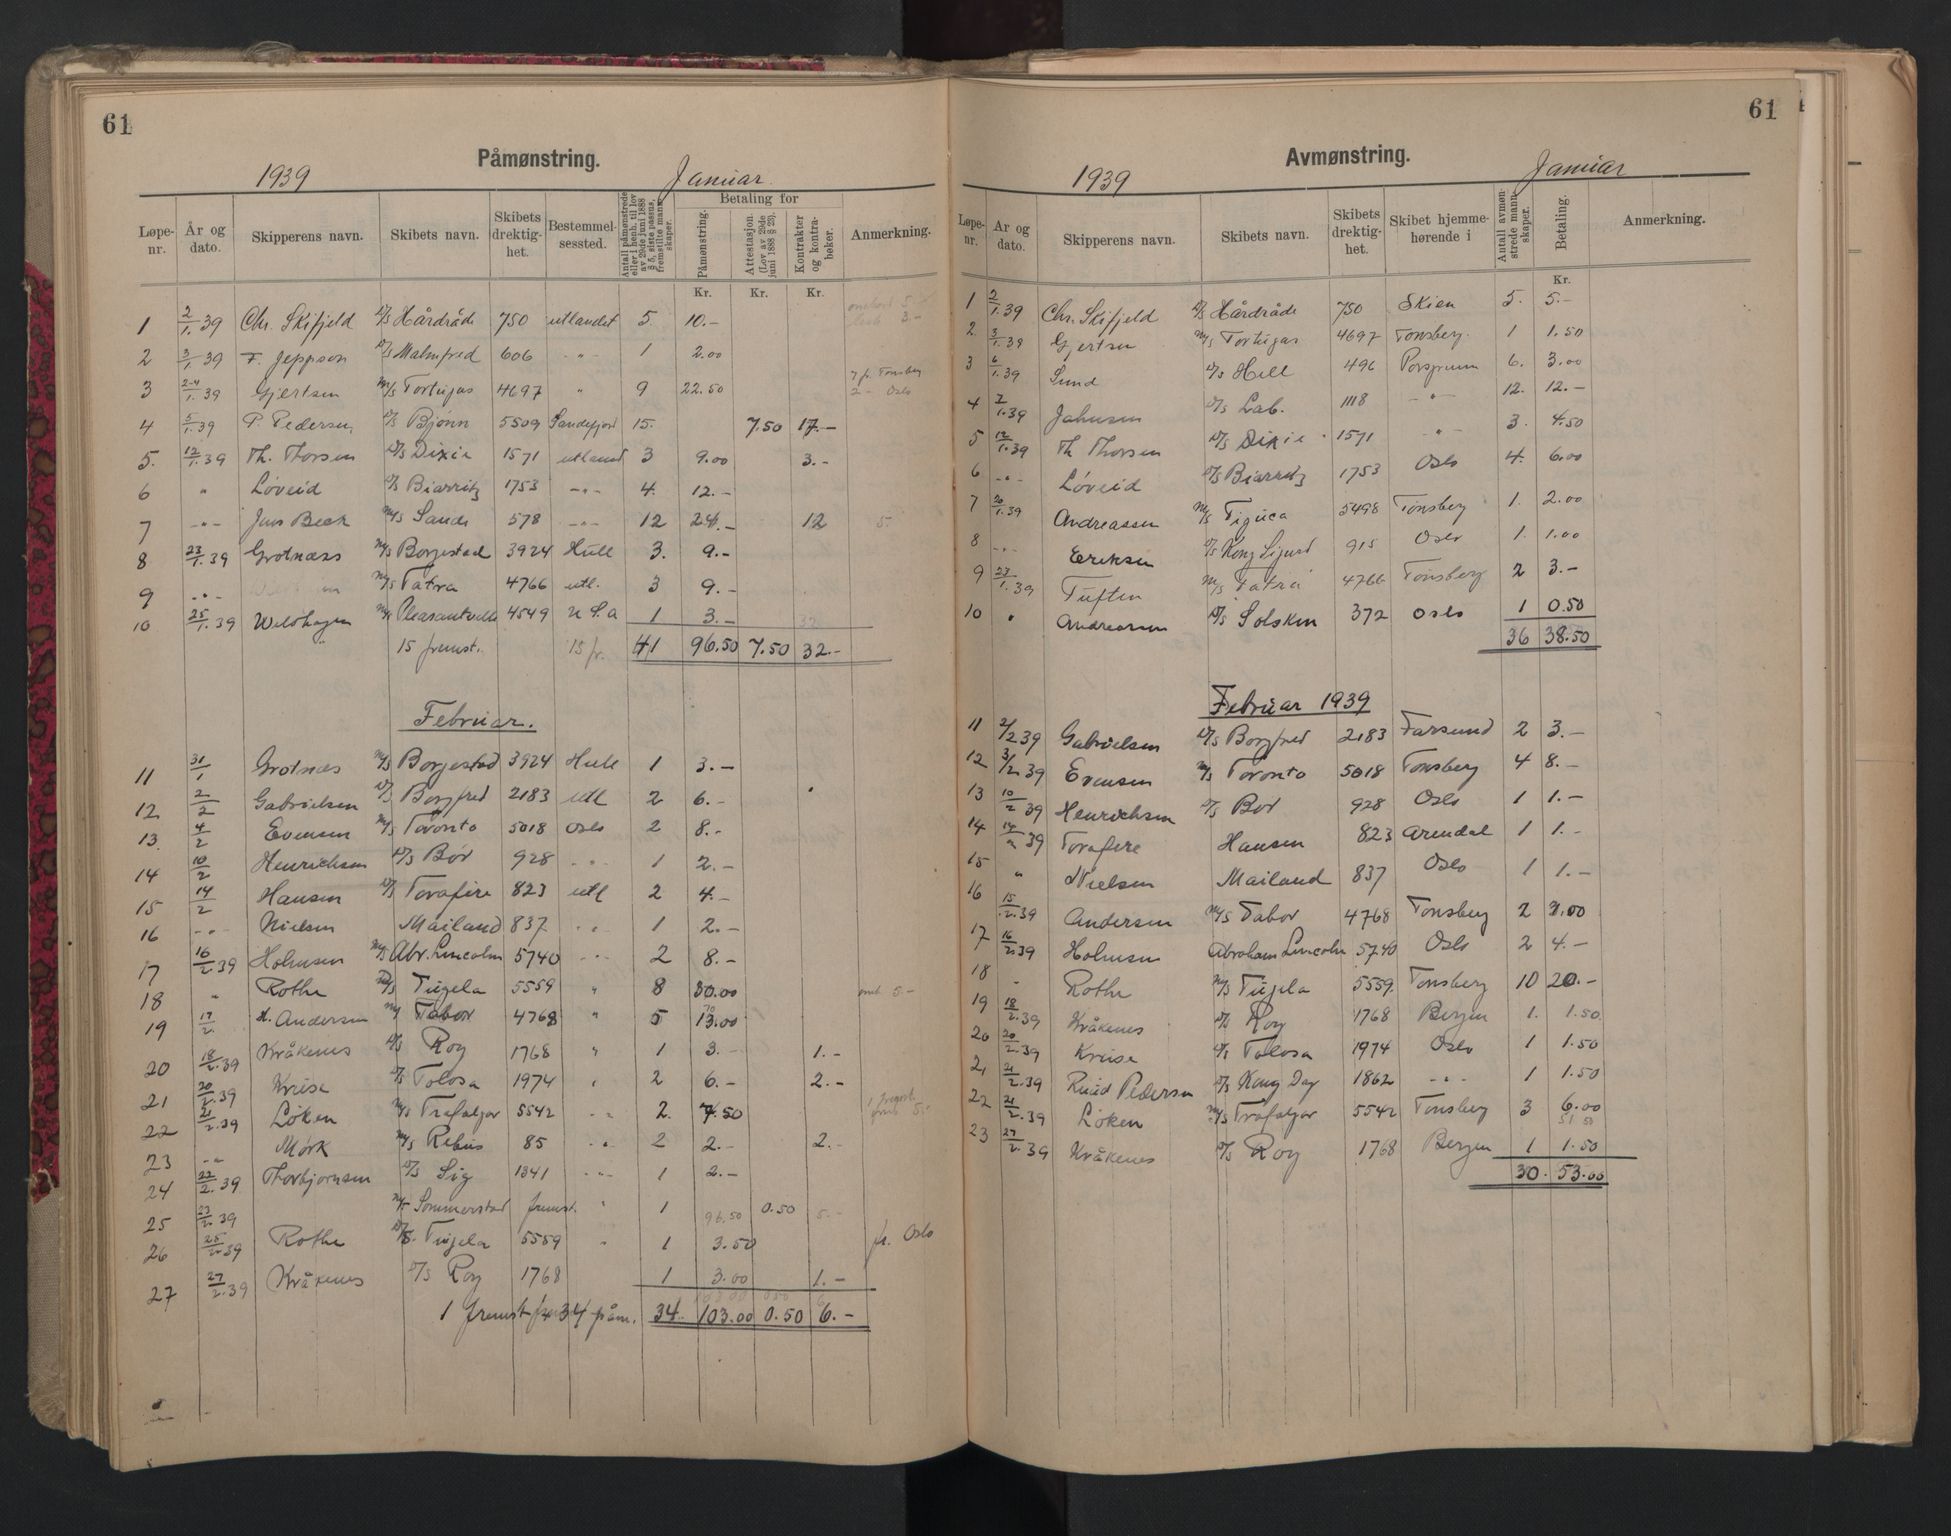 61
Påmønstring.
1939 Januar.
Løpe-nr. År og dato. Skipperens navn. Skibets navn. Skibets drektig-het. Bestemmel-sessted. Antall påmønstrede eller i henh. til lov av 29de juni 1888 § 5, siste passus, fremstilte mann-skaper. Betaling for Påmønstring. Attestasjon (Lov av 29de juni 1888 § 29). Kontrakter og kontra-bøker. Anmerkning.
Kr. Kr. Kr.
1 2/1.39 Chr. Skifjeld D/s Hårdråde 750 utlandet 5. 10.- 5.- 3.-
2 3/1.39 F. Jeppson D/s Malmfred 606 -"- 1 2.00
3 2-4/1.39 Gjertsen M/s Tortugas 4697 " 9 22.50 7 fr. Tønsberg 2 - Oslo
4 5/1.39 P. Pedersen D/s Bjønn 5509 Sandefjord 15. 7.50 17.-
5. 12/1.39 Th. Thorsen D/s Dixie 1571 utland 3 9.00 3.-
6 " Løveid D/s Biarritz 1753 -"- 4. 12.-
7 -"- Jens Beck M/s Sande 578 -"- 12 24.- 12 5.
8 23/1.39 Grotnæss M/s Borgestad 3924 Hull 3. 9.-
9 -"- M/s Tatra 4766 utl. 3 9.-
10 25/1.39 Wildhagen M/s Pleasantville 4549 U.S.A 1 3.- 32
15 fremst. 15 fr. 41 96.50 7.50 32.-
Februar.
11 31/1 Grotnæs M/s Borgestad 3924 Hull 1 3.-
12. 2/2 Gabrielsen D/s Borgfred 2183 utl 2 6.-
13. 4/2 Evensen M/s Toronto 5018 Oslo 2 8.-
14 10/2 Henrichsen D/s Bør 928 -"- 1 2.-
15 14/2 Hansen D/s Torafire 823 utl 2 4.-
16 -"- Nielsen Mailand 837 -"- 1 2.-
17 16/2.39 Holmsen M/s Abr. Lincoln 5740 -"- 2 8.-
18 " Rothe M/s Tugela 5559 " 8 30.00 5.-
19 17/2. H. Andersen M/ Tabor 4768 " 5 13.00
20 18/2.39 Kråkenes D/s Roy 1768 " 1 3.- 1.-
21 20/2.39 Kruse D/s Tolosa 1974 " 2 6.- 2.-
22 21/2.39 Løken M/s Trafalgar 5542 -"- 2. 7.50 5.-
23 -"- Mørk M/s Rebus 85 -"- 2 2.- 2.-
24 22/2.39 Thorbjørnsen D/s Sig 1341 -"- 1 2.-
25 23/2.39 M/s Sommerstad fremst. " 1 96.50 0.50 5.-
26 25/2.39 Rothe Tugela 5559 " 1 3.50 fr. Oslo
27 27/2.39 Kråkenes D/s Roy 1768 1 3.00 1.-
1 fremst 34 påm. 34. 103.00 0.50 6.-
61
Avmønstring.
1939 Januar
Løpe-nr. År og dato. Skipperens navn. Skibets navn. Skibets drektig-het. Skibet hjemme-hørende i Antall avmøn-strede mann-skaper. Betaling. Anmerkning.
Kr.
1 2/1.39 Chr. Skifjeld D/s Hårdråde 750 Skien 5. 5.-
2. 3/1.39 Gjertsen M/s Tortugas 4697 Tønsberg. 1 1.50
3 6/1.39 Lund D/s Hell 496 Porsgrunn 6. 3.00
4 7/1.39 Jahnsen D/s Lab. 1118 -"- 12. 12.-
5 12/1.39 Th Thorsen D/s Dixie 1571 -"- 3. 4.50
6 -"- Løveid D/s Biarritz 1753 Oslo 4. 6.00
7 20/1.39 Andreassen M/s Tiguca 5498 Tønsberg 1. 2.00
8 -"- Eriksen D/s Kong Sigurd 915 Oslo 1. 1.00
9 23/1.39 Tuften M/s Tatra 4766 Tønsberg 2 3.-
10 " Andreassen D/s Solskin 372 Oslo 1 0.50
36 38.50
Februar 1939
11 2/2 39 Gabrielsen D/s Borgfred 2183 Farsund 2 3.-
12 3/2 39 Evensen M/s Toronto 5018 Tønsberg 4 8.-
13 10/2 39 Henrichsen D/s Bør 928 Oslo 1 1.-
14 14/2 39 Torafire Hansen 823 Arendal 1 1.-
15 " Nielsen Mailand 837 Oslo 1 1.-
16 15/2.39 Andersen M/s Tabor 4768 Tønsberg 2 3.00
17 16/2.39 Holmsen Abraham Lincoln 5740 Oslo 2 4.-
18 " Rothe M/s Tugela 5559. Tønsberg 10 20.-
19 18/2.39 Kråkenes D/s Roy 1768 Bergen 1. 1.50
20 20/2.39 Kruse D/s Tolosa 1974 Oslo 1 1.50
21 21/2.39 Ruud Pedersen D/s Kong Dag 1862 -"- 1 1.50
22 21/2.39 Løken M/s Trafalgar 5542 Tønsberg 3 6.00
51 50
23 27/2.39 Kråkenes D/s Roy 1768 Bergen 1 1.50
30. 53.00